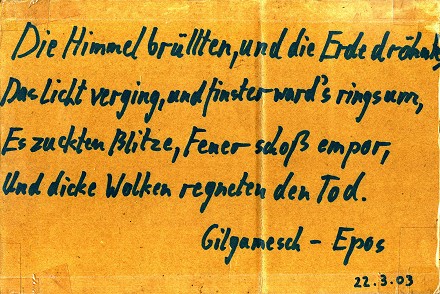 Die Himmel brüllten, und die Erde dröhnte,
Das Licht verging, und finster ward's ringsum,
Es zuckten Blitze, Feuer schoß empor,
Und dicke Wolken regneten den Tod.
Gilgamesch - Epos
22.3.03